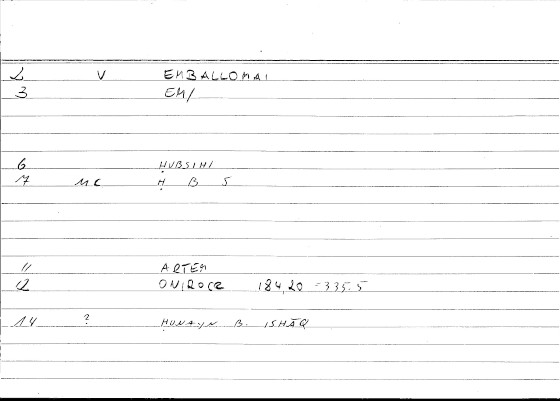 2 V EMBALLOMAI
3 EM/
6 ḤUBSINI
7 MC Ḥ B S
11 ARTEM
12 ONIROCR 184,20 = 335.5
14 ? ḤUNAYN B. ISḤĀQ